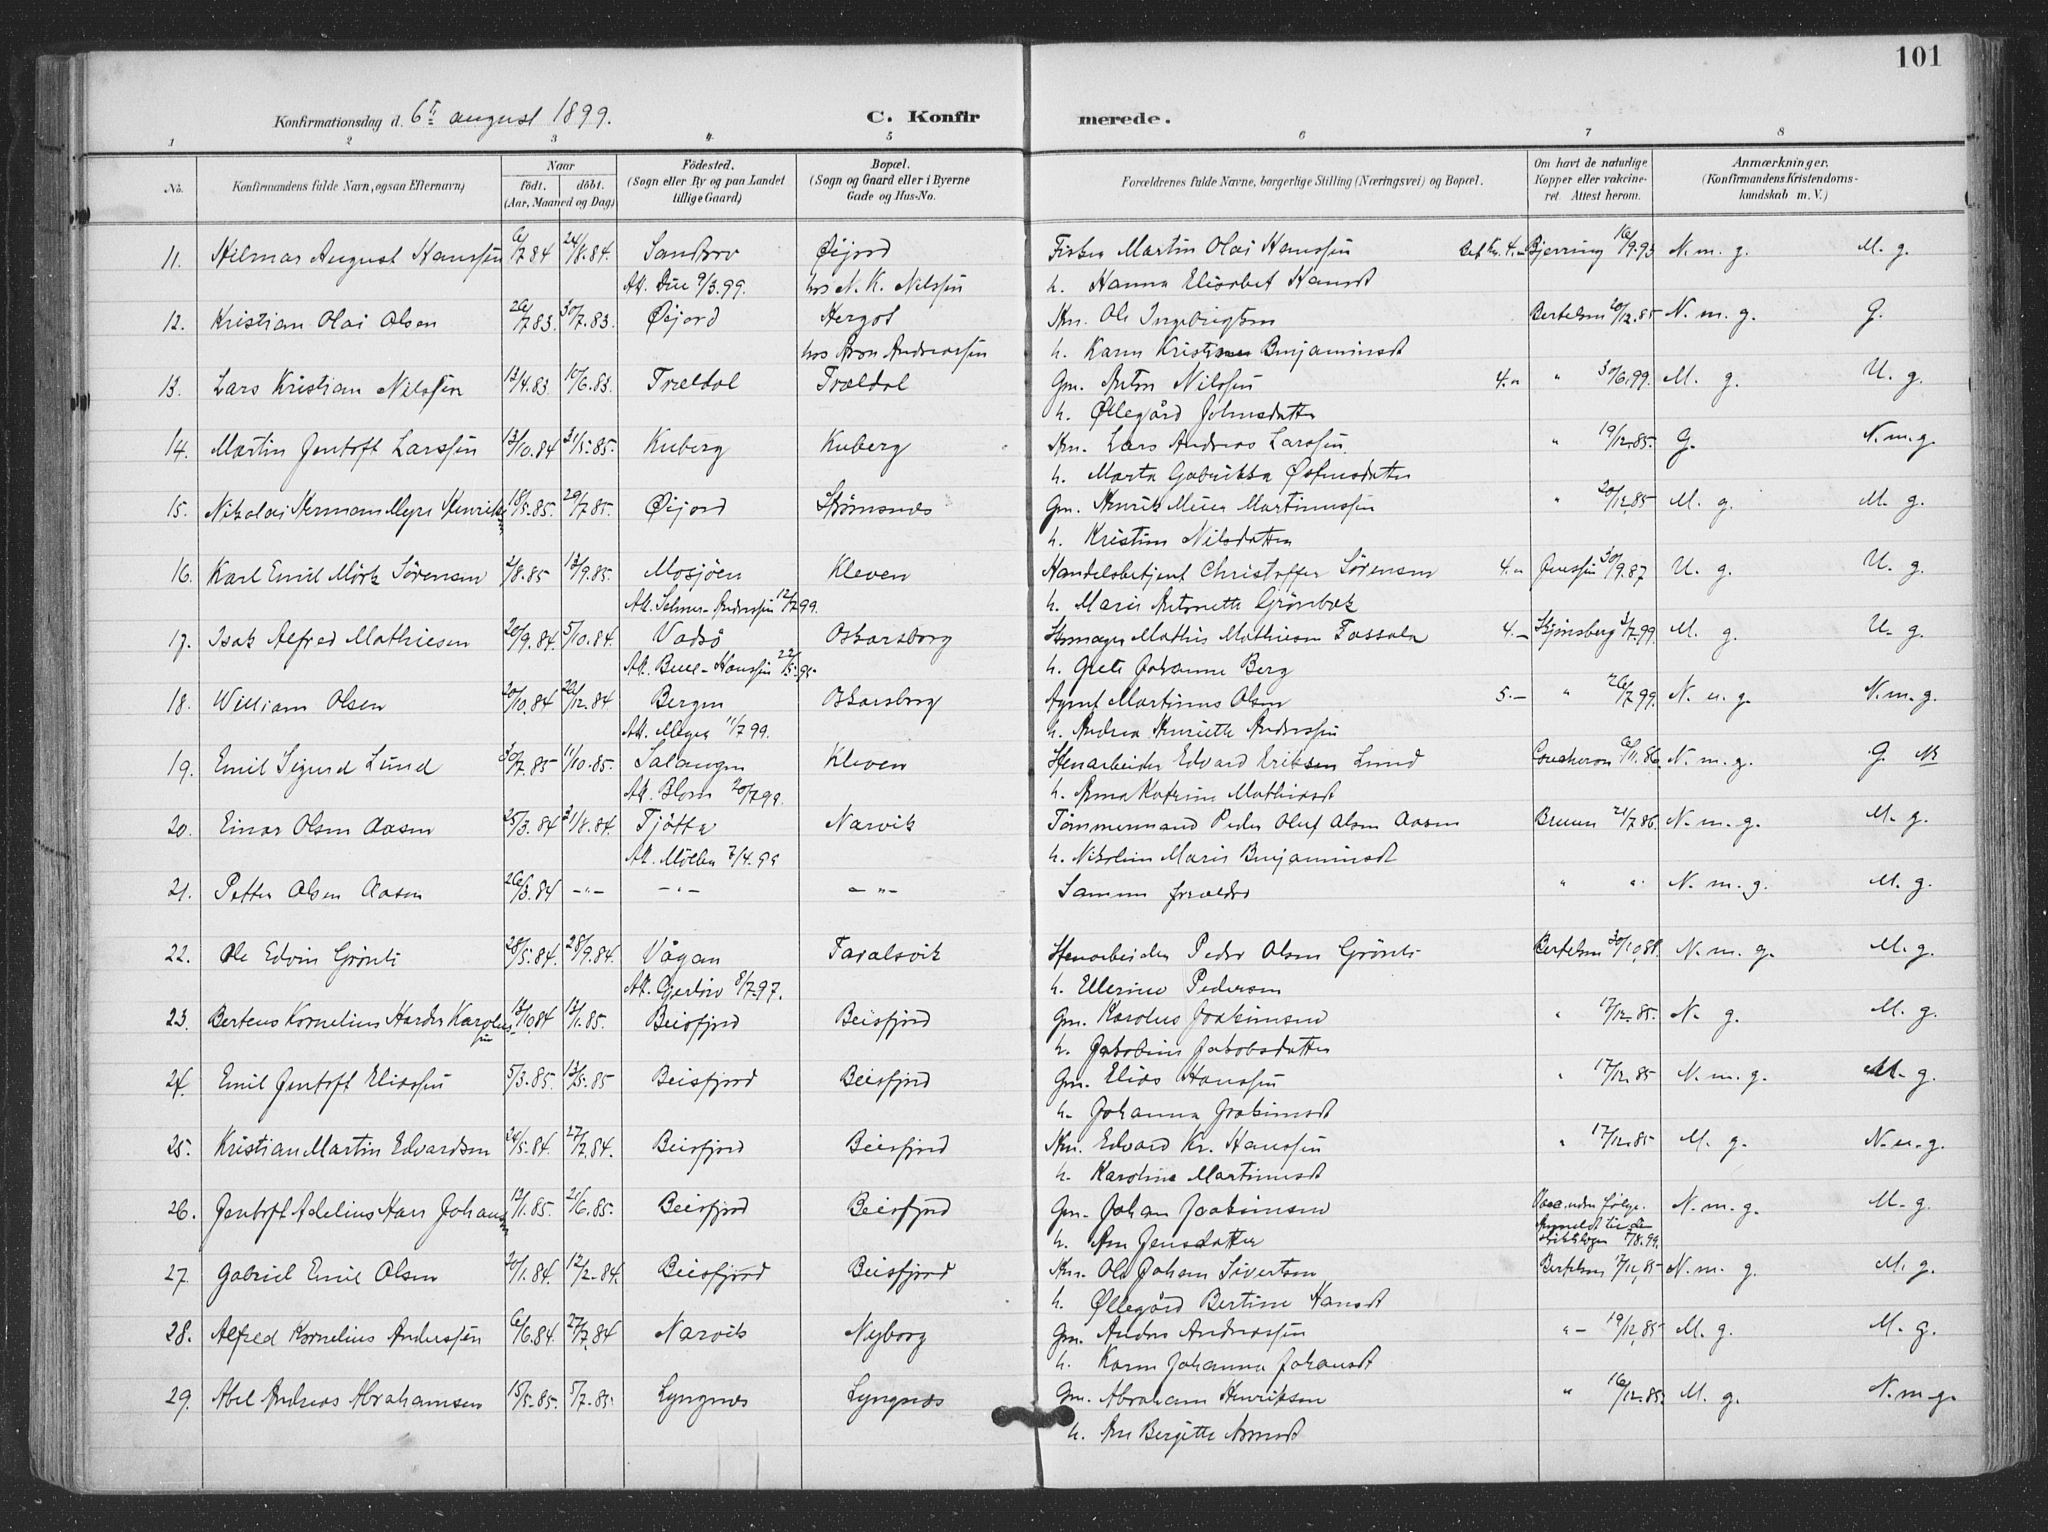 101
Konfirmationsdag d. 6t august 1899.
C. Konfir merede.
1 2 3 4 5 6 7 8
No.
Konfirmandens fulde Navn, ogsaa Efternavn)
Naar
födt. döbt.
(Aar, Maaned og Dag)
Födested.
(Sogn eller By og paa Landet
tillige Gaard)
Bopæl.
(Sogn og Gaard eller i Byerne
Gade og Hus-No.
Forældrenes fulde Navne, borgerlige Stilling (Næringsvei) og Bopæl.
Om havt de naturlige
Kopper eller vakcine-
ret. Attest herom.
Anmærkninger.
(Konfirmandens Kristendoms-
kundskab m. V.)
11. Hilmar August Hanssen 6/7 84 24/8. 84. Sandtorv Øijord Fisker Martin Olai Hanssen Bjerring 16/9. 93 N. m. g. M. g.
At. Due 9/3. 99. hos N. K. Nilssen h. Hanna Elisabet Hansdt
12. Kristian Olai Olsen 26/7 83. 30/7. 83. Øijord Hergot Km. Ole Ingebrigtsen Bertelsen 20/12. 85 N. m. g. G.
hos Aron Andreassen h. Karen Kristine Benjaminsdt
13. Lars Kristian Nilssen 13/4. 83. 10/6. 83. Trældal Trældal Gm. Anton Nilssen 4. " " 30/6. 99. M. g. U. g.
h. Øllegård Johnsdatter
14. Martin Jentoft Larssen 13/10. 84 31/5. 85. Kuberg Kuberg Km. Lars Andreas Larssen " 19/12. 85. G. N. m. g.
h. Marta Gabrikka
15. Nikolai Herman Myre Henriks 18/5. 85. 29/7. 85. Øijord Strømsnes Gm. Henrik Meier Martinussen " 20/12. 85 M. g. M. g.
h. Kristine Nilsdatter
16. Karl Emil Mörk Sörensen 2/8. 85 13/9. 85. Mosjöen Kleven Handelsbetjent Christoffer Sørensen 4. " Jenssen 30/9. 87 U. g. U. g.
12/7 99. h. Marie Antonette Grönbæk
17. Isak Alfred Mathiesen 20/9. 84. 5/10. 84. Vadsö Oskarsborg Skomager Mathis Mathiesen 4. - Skjönsberg 3/7. 99. M. g. U. g.
h. Grete Johanne Berg
18. William Olsen 20/10. 84 26/12. 84 Bergen Oskarsborg Agent Martinus Olsen 5. - " 26/7 99. N. m. g. N. m. g.
At. Meyer 11/7 99. h. Andrea Henriette Anderssen
19. Emil Sigurd Lund 30/7. 85 11/10. 85. Salangen Kleven Stenarbeider Edvard Eriksen Lund Coucheron 6/11. 86. N. m. g. G. NB
At. Blom 20/7 99. h. Anna Katrine Mathiasdt
20. Einar Olsen Aasen 25/3. 84 31/8. 84. Tjötta Narvik Tömmermand Peder Oluf Olsen Aasen Bruun 21/7 86. N. m. g. M. g.
At. Möller 7/4. 99 h. Nikoline Marie Benjaminsdt
21. Petter Olsen Aasen 26/3. 84 -"- -"- -"- Samme forældre " " N. m. g. M. g.
22. Ole Edvin Grönli 28/5. 84. 28/9. 84. Vågan Taraldsvik Stenarbeider Peder Olsen Grönli Bertelsen 30/10. 88. N. m. g. M. g.
At. Gjerlöw 8/7. 97. h. Ellerine Pedersen
23. Berteus Kornelius Harder Karolus
sen 13/10. 84 13/1. 85. Beisfjord Beisfjord Gm. Karolus Joakimsen " 17/12. 85. N. g. M. g.
h. Jakobine Jakobsdatter
24. Emil Jentoft Eliassen 5/3. 85. 13/5. 85 Beisfjord Beisfjord Gm. Elias Hanssen " 17/12. 85 N. m. g. M. g.
h. Johanna Joakimsdt
25. Kristian Martin Edvardsen 24/5. 84. 27/7. 84. Beisfjord Beisfjord Km. Edvard Kr. Hanssen " 17/12. 85 M. g. N. m. g.
h. Karolina Martinusdt
26. Jentoft Adelius Harr Johans 13/1. 85. 21/6. 85. Beisfjord Beisfjord Gm. Johan Joakimsen Vacc. uden følge. N. m. g. M. g.
h. Ane Jensdatter Anmeldt til 7/8. 99.
27. Gabriel Emil Olsen 20/1. 84. 12/2. 84. Beisfjord Beisfjord Km. Ole Johan Sivertsen Bertelsen 17/12. 85 N. m. g. M. g.
h. Øllegård Bertine Hansdt
28. Alfred Kornelius Anderssen 6/6. 84. 27/7. 84 Narvik Nyborg Gm. Anders Andreassen " - 19/12. 85 M. g. M. g.
h. Karen Johanna Johansdt
29. Abel Andreas Abrahamsen 15/5. 85. 5/7. 85 Lyngnes Lyngnes Gm. Abraham Henriksen " 16/12. 85. M. g. N. m. g.
h. Ane Birgitte